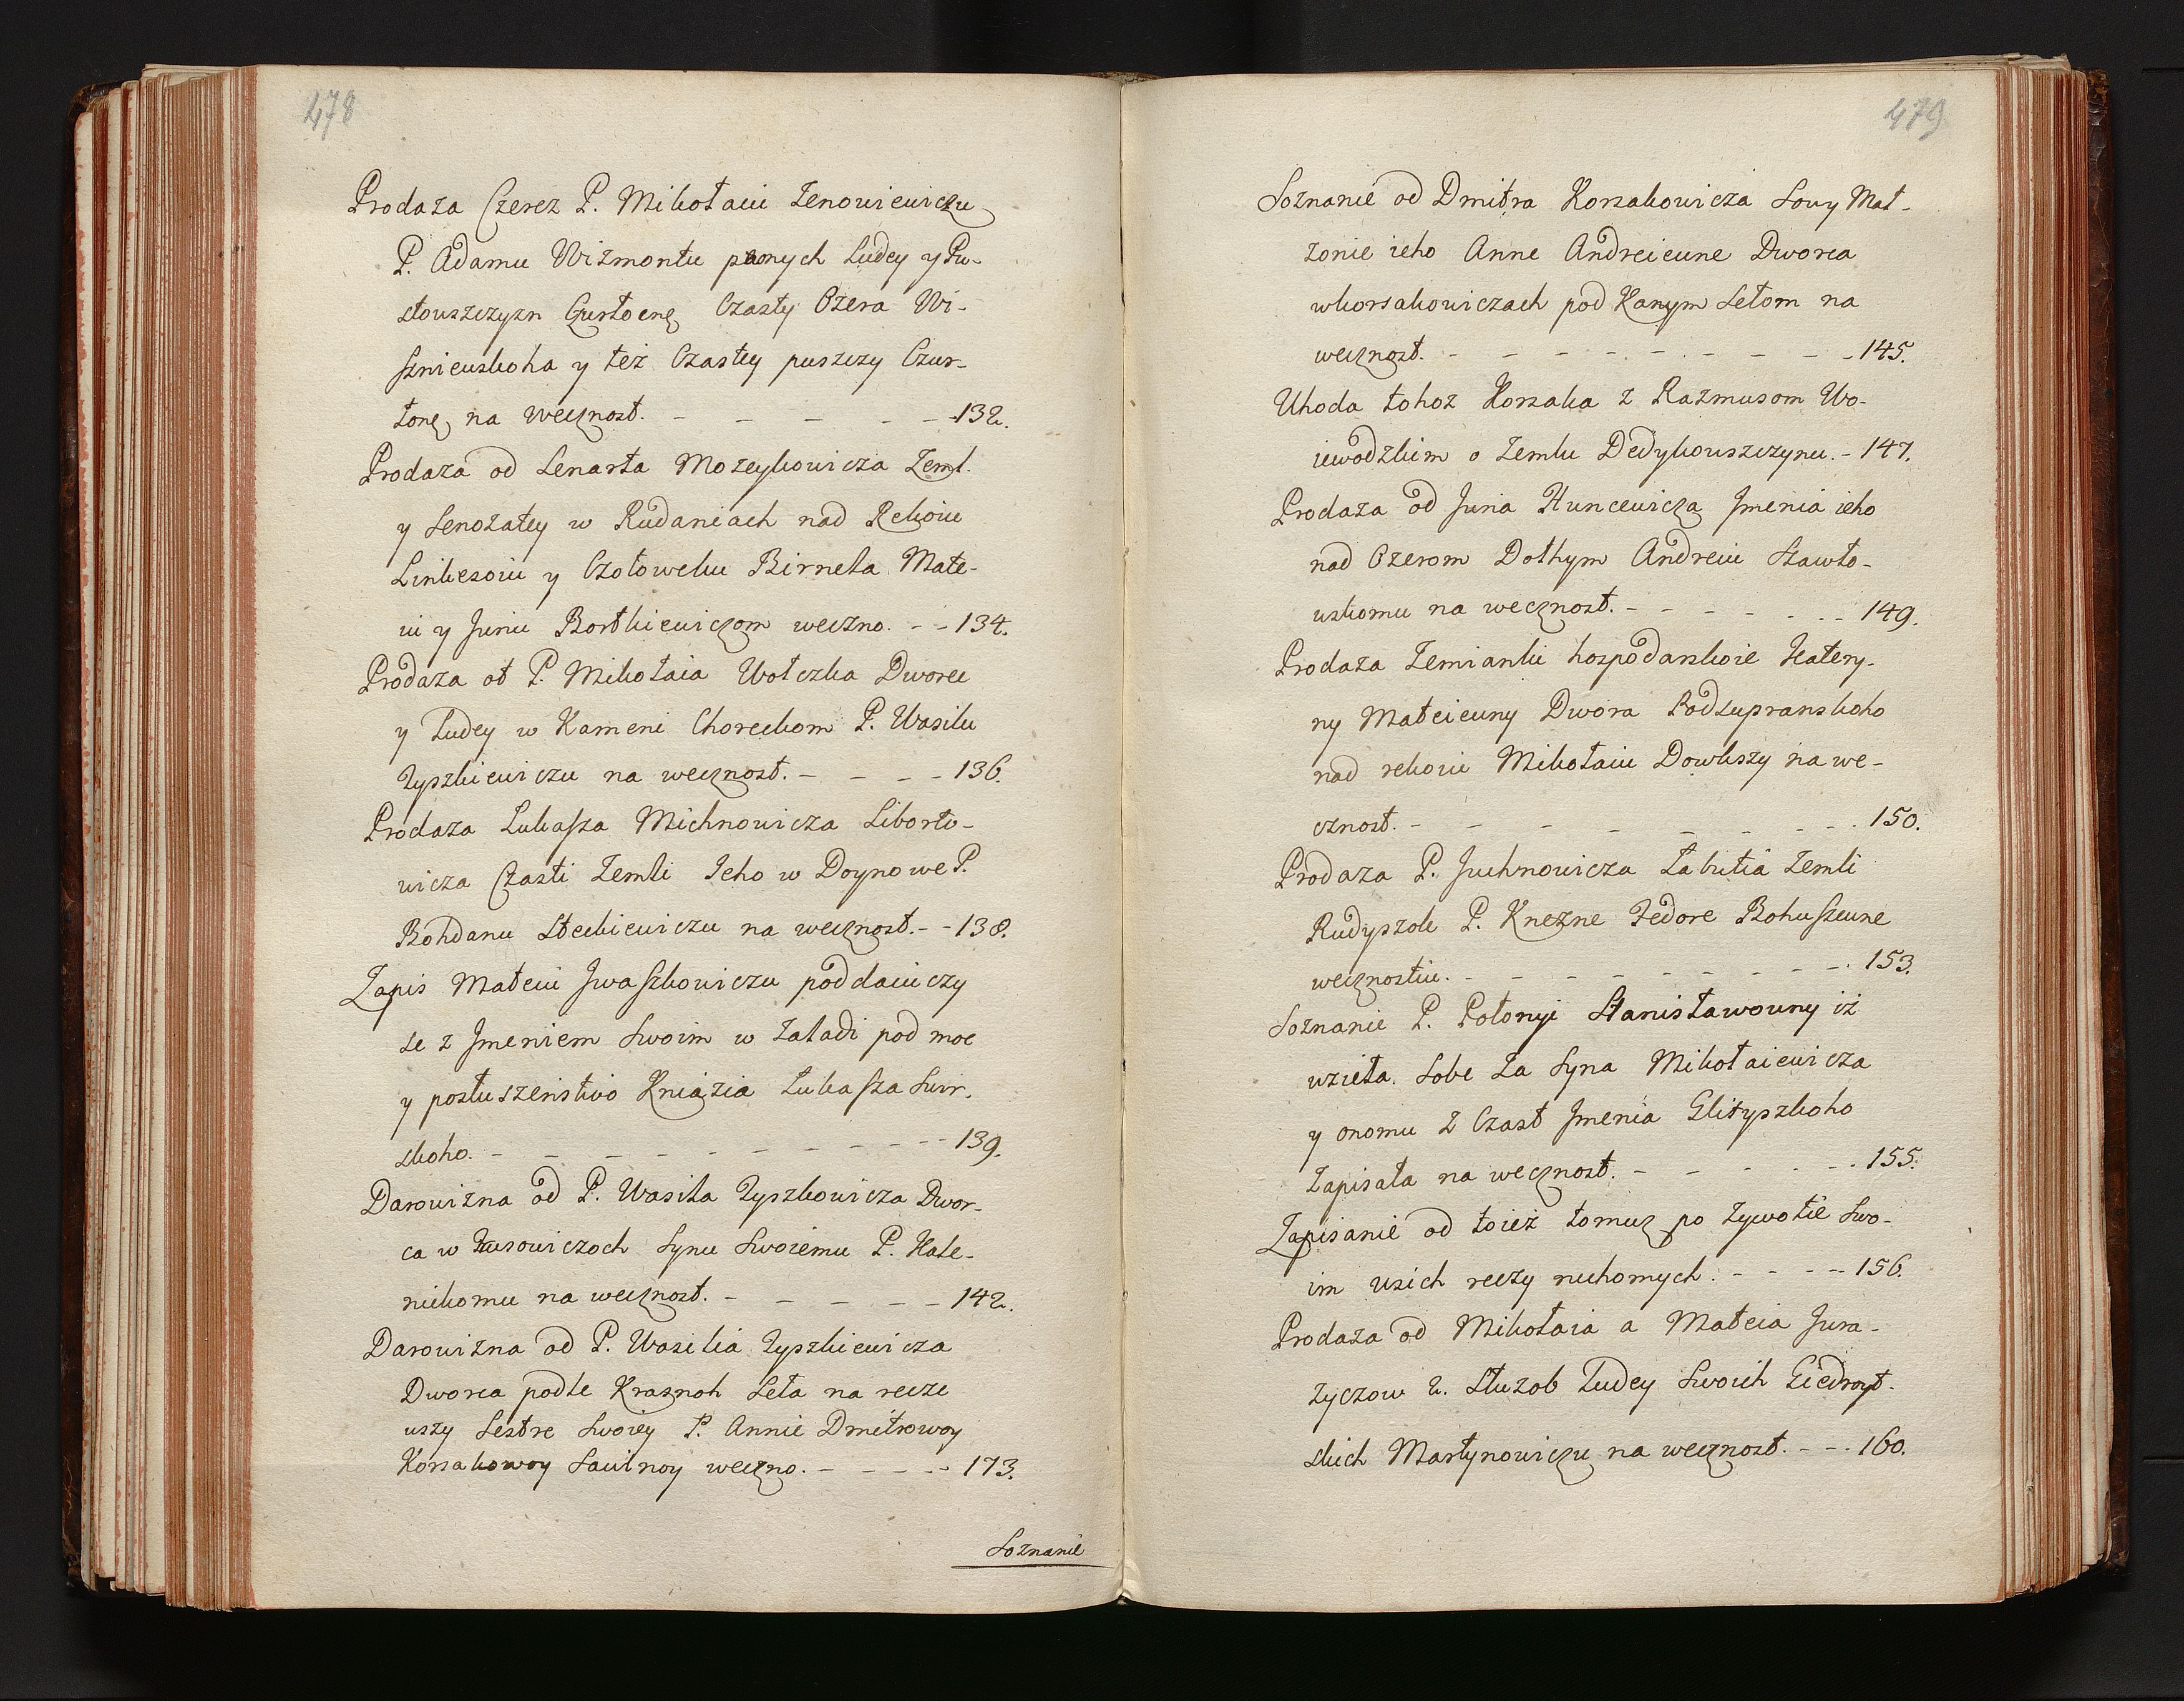 478
Prodaża Czerez P. Mikołaiu Zenowiewiczu
P. Adamu Wizmontu pewnych Ludey y Pu-
stouszczyzn Czurłoenę Czasty Ozera Wi-
szniewskoha y też Czastey puszczy Czur-
łonę na wecznost. - - - - - 132.
Prodaża od Lenarta Mozeykowicza Zeml.
y Senożatey w Rudaniach nad Rekoiu
Linkesoiu y Czołoweku Birneła Mate-
iu y Juriu Bortkiewiczom weczno. - - 134.
Prodaża ot P. Mikołaia Wołczka Dworcu
y Ludey w Kameni Choreckom P. Wasilu
Tyszkiewiczu na wecznost. - - - - 136.
Prodaża Łukasza Michnowicza Liborto-
wicza Czasti Zemli Jeho w Doynowe P.
Bohdanu Steckiewiczu na wecznost. - - 138.
Zapis Mateiu Jwaszkowiczu poddaiuczy
se z Jmeniem Swoim w Zakadi pod moc
y posłuszeństwo Kniazia Łukasza Swir.
skoho. - - - - - - - - - 139.
Darowizna od P. Wasila Tyszkowicza Dwor-
ca w Rusowiczoch Synu Swoiemu P. Kale-
nickomu na wecznost. - - - - - 142.
Darowizna od P. Wasilia Tyszkiewicza
Dworca podle Krasnoh Seła na recze
uszy Sestre Swoiey P. Annie Dmitrowoy
Korsakowoy Sawinoy weczno. - - - - 173.
Soznanie
479
Soznanie od Dmitra Korsakowicza Sowy Mał-
żonie ieho Anne Andreieune Dworca
wkorsakowiczach pod Kanym Setom na
wecznost. - - - - - - - - 145.
Uhoda tohoż Korsaka z Razmusom Wo-
iewodzkim o Zemlu Dedykouszczynu. - 147.
Prodaża od Juria Huncewicza Jmenia ieho
nad Ozerom Dołhym Andreiu Stawło-
uskomu na wecznost. - - - - - - 149.
Prodaża Zemianki hospodarskoie Katery-
ny Mateieuny Dwora Podzupranskoho
nad rekoiu Mikołaiu Dowkszy na we-
cznost. - - - - - - - - 150.
Prodaża P. Juchnowicza Łabutia Zemli
Rudyszole P. Knezne Fedore Bohuszeune
wecznostiu. - - - - - - - - 153.
Soznanie P. Połonyi Stanisławouny iż
wzieła Sobe za Syna Mikołaiewicza
y onomu 2 Czast Jmenia Glityszkoho
Zapisała na wecznost. - - - - - 155.
Zapisanie od toież tomuż po Zywotie Swo-
im wsich reczy ruchomych. - - - - 156.
Prodaża od Mikołaia a Mateia Jura-
życzow 2. Służob Ludey Swoich Giedroyt-
skich Martynowiczu na wecznost. - - - 160.